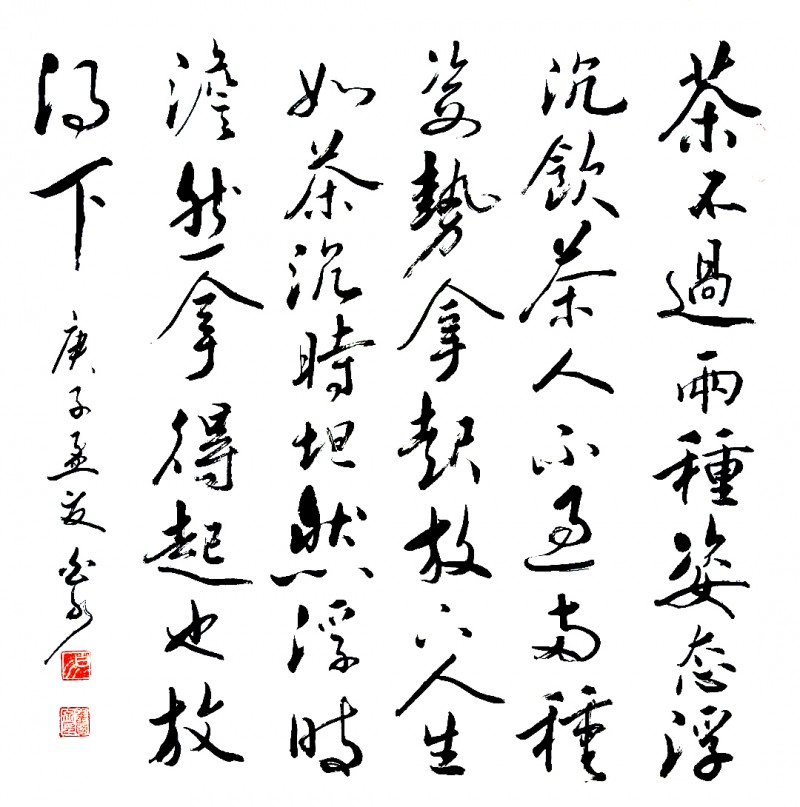 茶不過兩種姿态浮
沉飲茶人不過两種
姿勢拿起放下人生
如茶沉時坦然浮時
澹然拿得起也放
得下
庚子孟夏